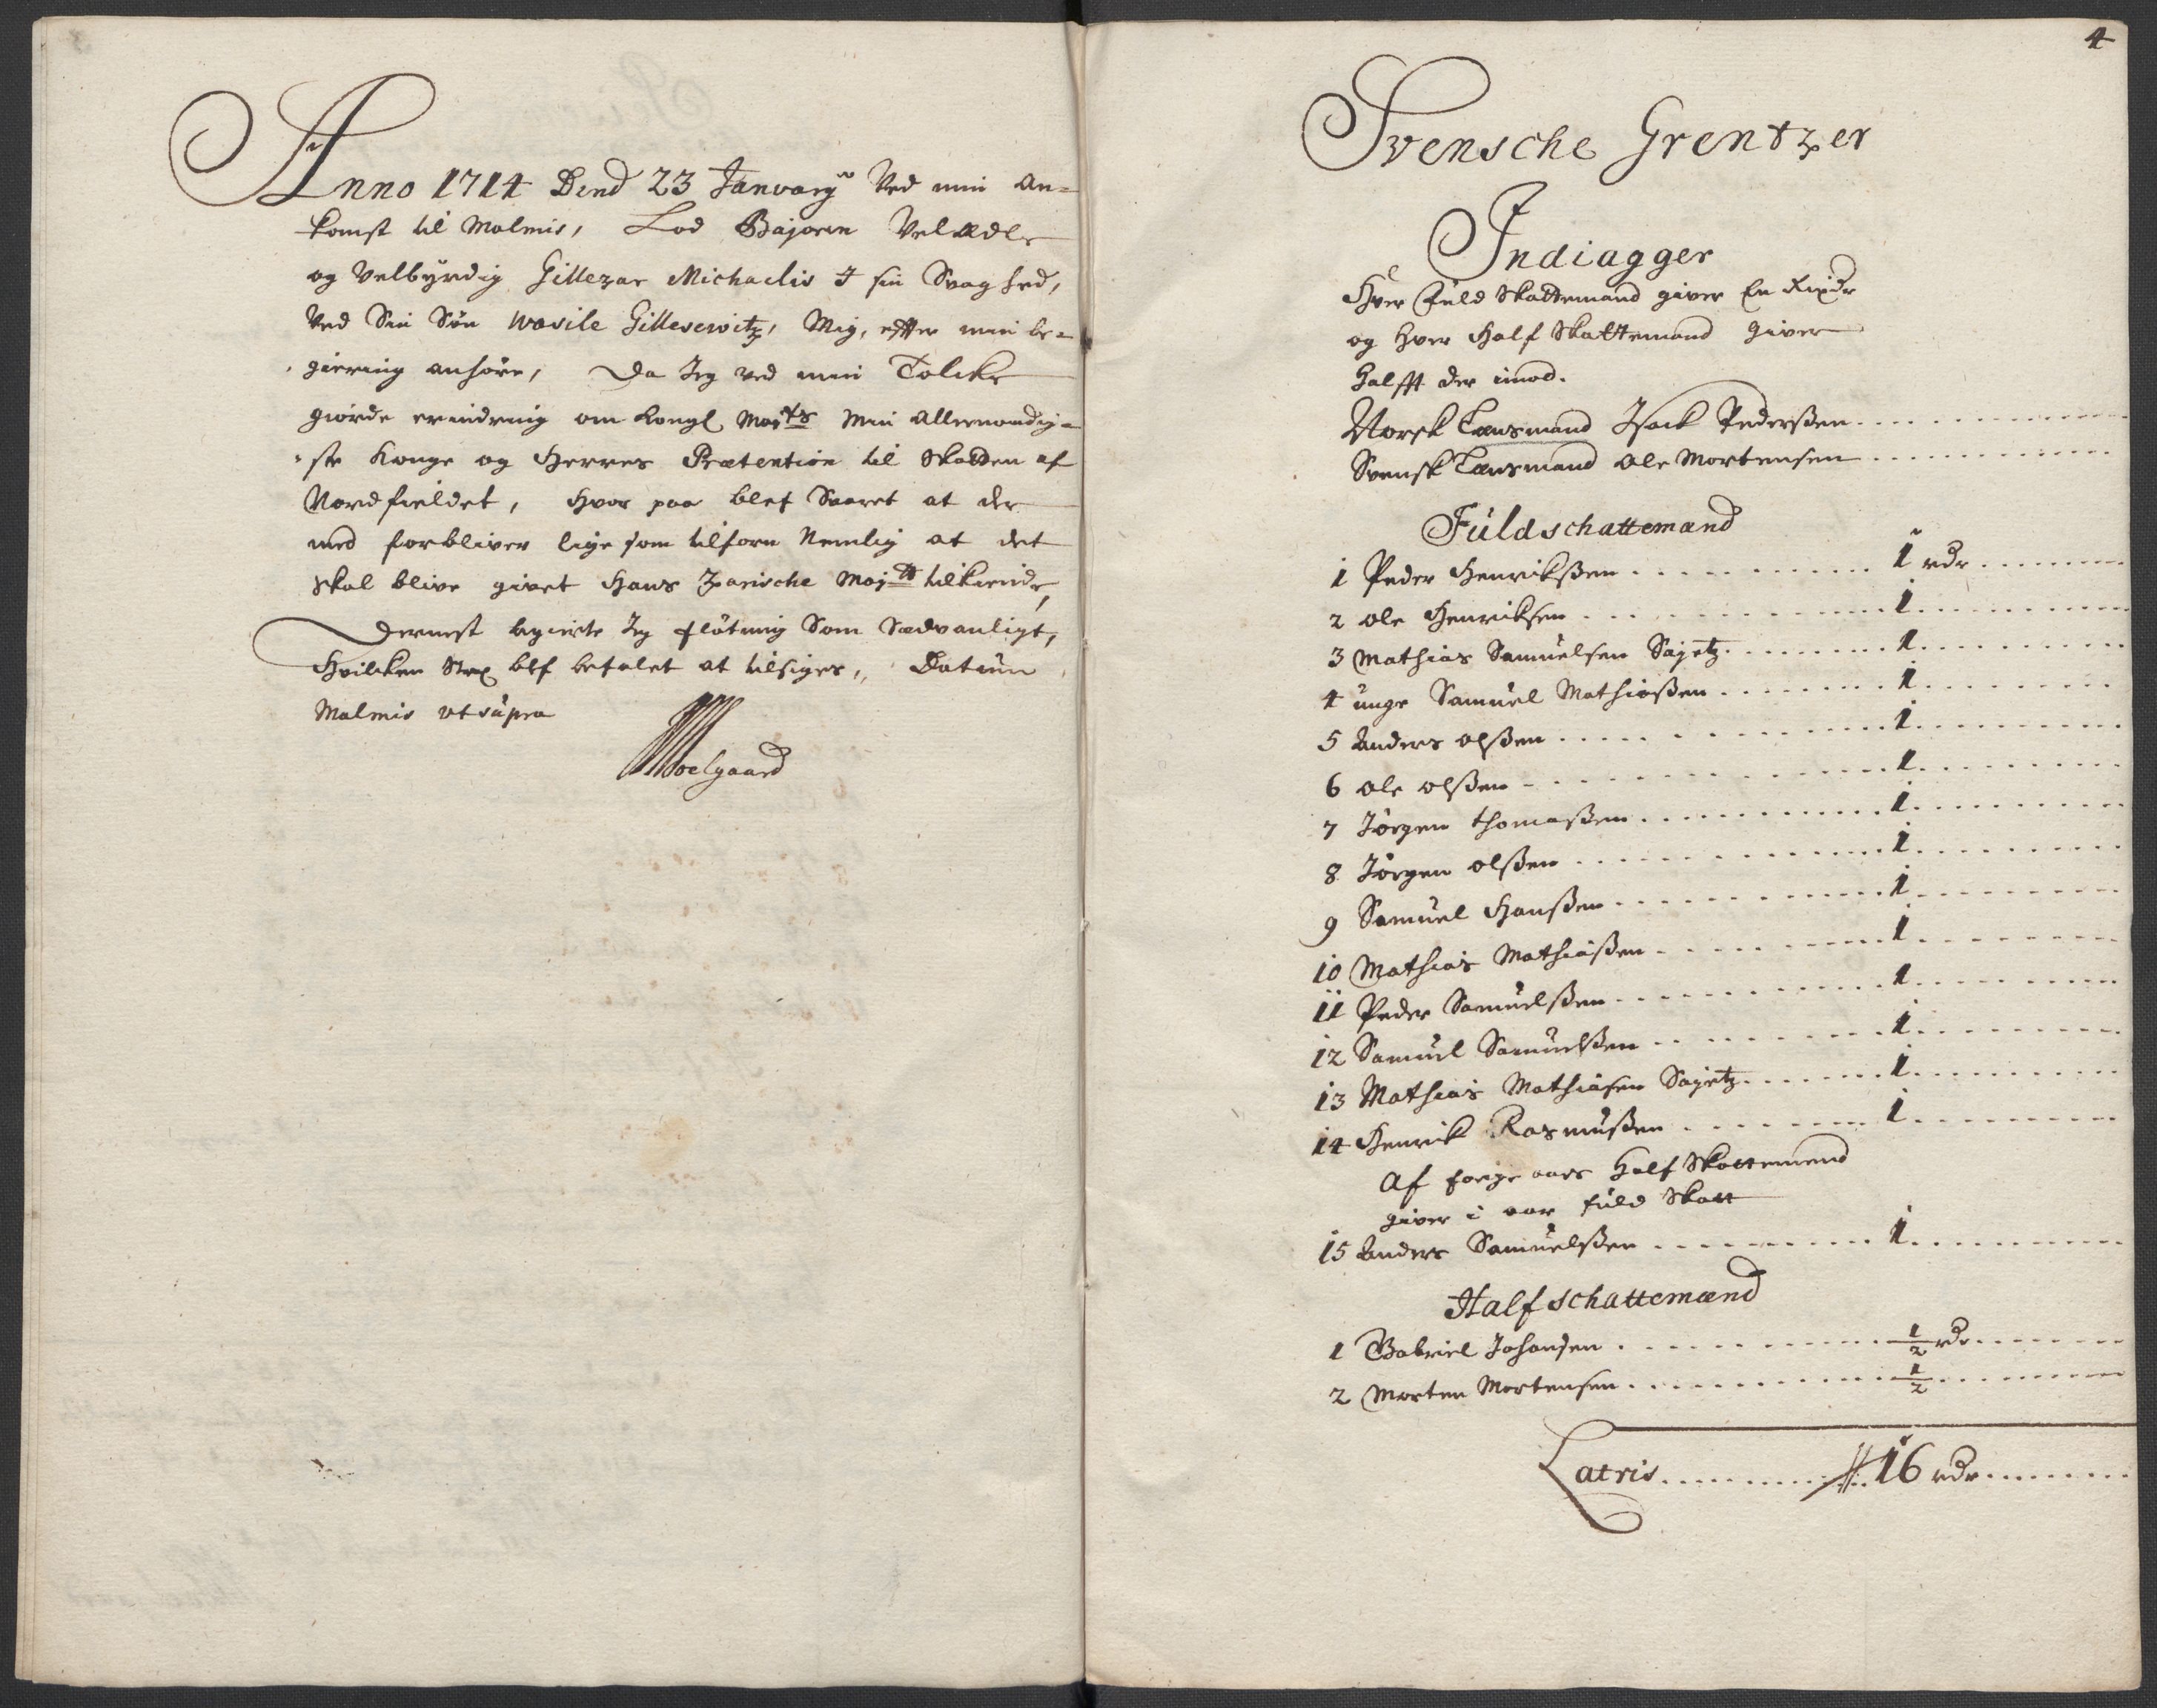 Anno 1714 Dend 23 January Ved min an=
komst til Malmis, Lod Bajoren Velædle
og Velbyrdig Gillezar Michaelis I sin Svaghed,
Ved Sin Søn Wasile Gillesewitz, Mig, effter min be=
giering anhöre, Da Jeg ved min Tolcke
giorde erindring om Kongl May:ts Min Allernaadig=
ste Konge og Herres Prætention til Skatten af
Nordfieldet, Hvor paa blef Svaret at der
med forbliver lige som tilforn Nemlig at det
skal blive givet Hans Zarische Maj:tt tilkiende,
Dernest begierte Jeg fløtning Som Sædvanligt,
Hvilken Strax blef befalet at tilsiges, Datum
Malmis ut supra
Soelgaard
4
Svensche Grentzer
Indiagger
Hver Fuld Skattemand giver En Rixdr
og Hver Half Skattemand giver
Halfft der imod.
Norsk Lænsmand Isack Pederßen
Svensk Lænsmand Ole Mortensen
Fuldschattemænd
1 Peder Henrikßen 1 rdr
2 Ole Henriksen 1
3 Mathias Samuelsen Sajetz 1
4 unge Samuel Mathiaßen 1
5 Anders olßen 1
6 Ole olßen 1
7 Jörgen Thomaßen 1
8 Jörgen olßen 1
9 Samuel Hanßen 1
10 Mathias Mathiaßen 1
11 Peder Samuelßen 1
12 Samuel Samuelßen 1
13 Mathias Mathiasen Sajetz 1
14 Henrik Rasmußen 1
Af forige aars Half Skattemend
giver i aar fuld Skatt
15 Anders Samuelßen 1
Halfschattemænd
1 Gabriel Johansen 1/2 rdr
2 Morten Mortensen 1/2
Latris 16 rdr